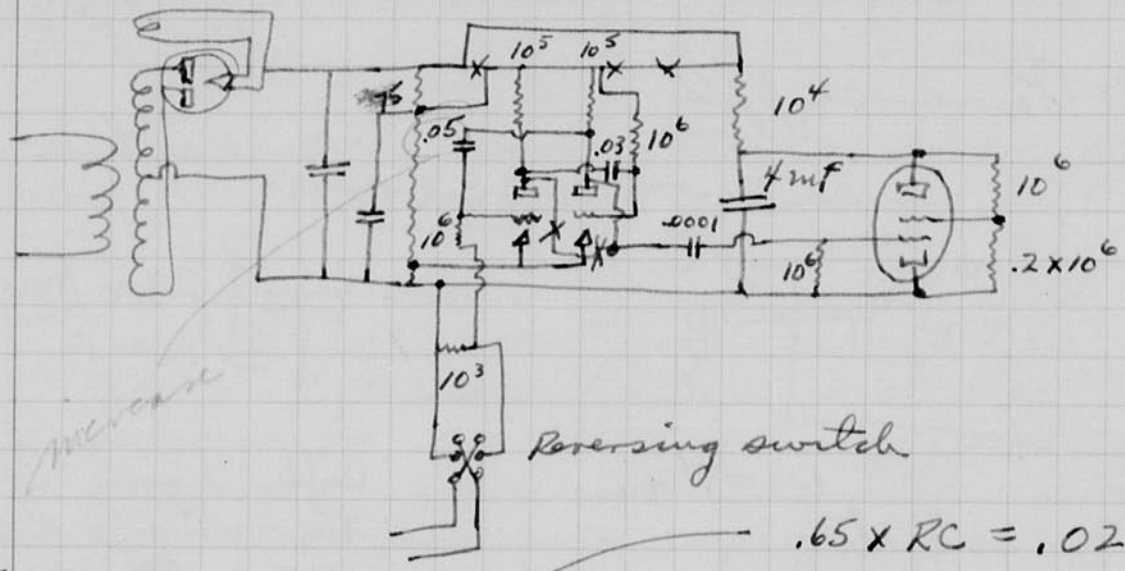 10⁵ 10⁵
10⁴
.05 .03 10⁶
4 mf 10⁶
.0001
10⁶ 10⁶ .2 x 10⁶
10³
increase
Reversing switch
.65 x RC = .02